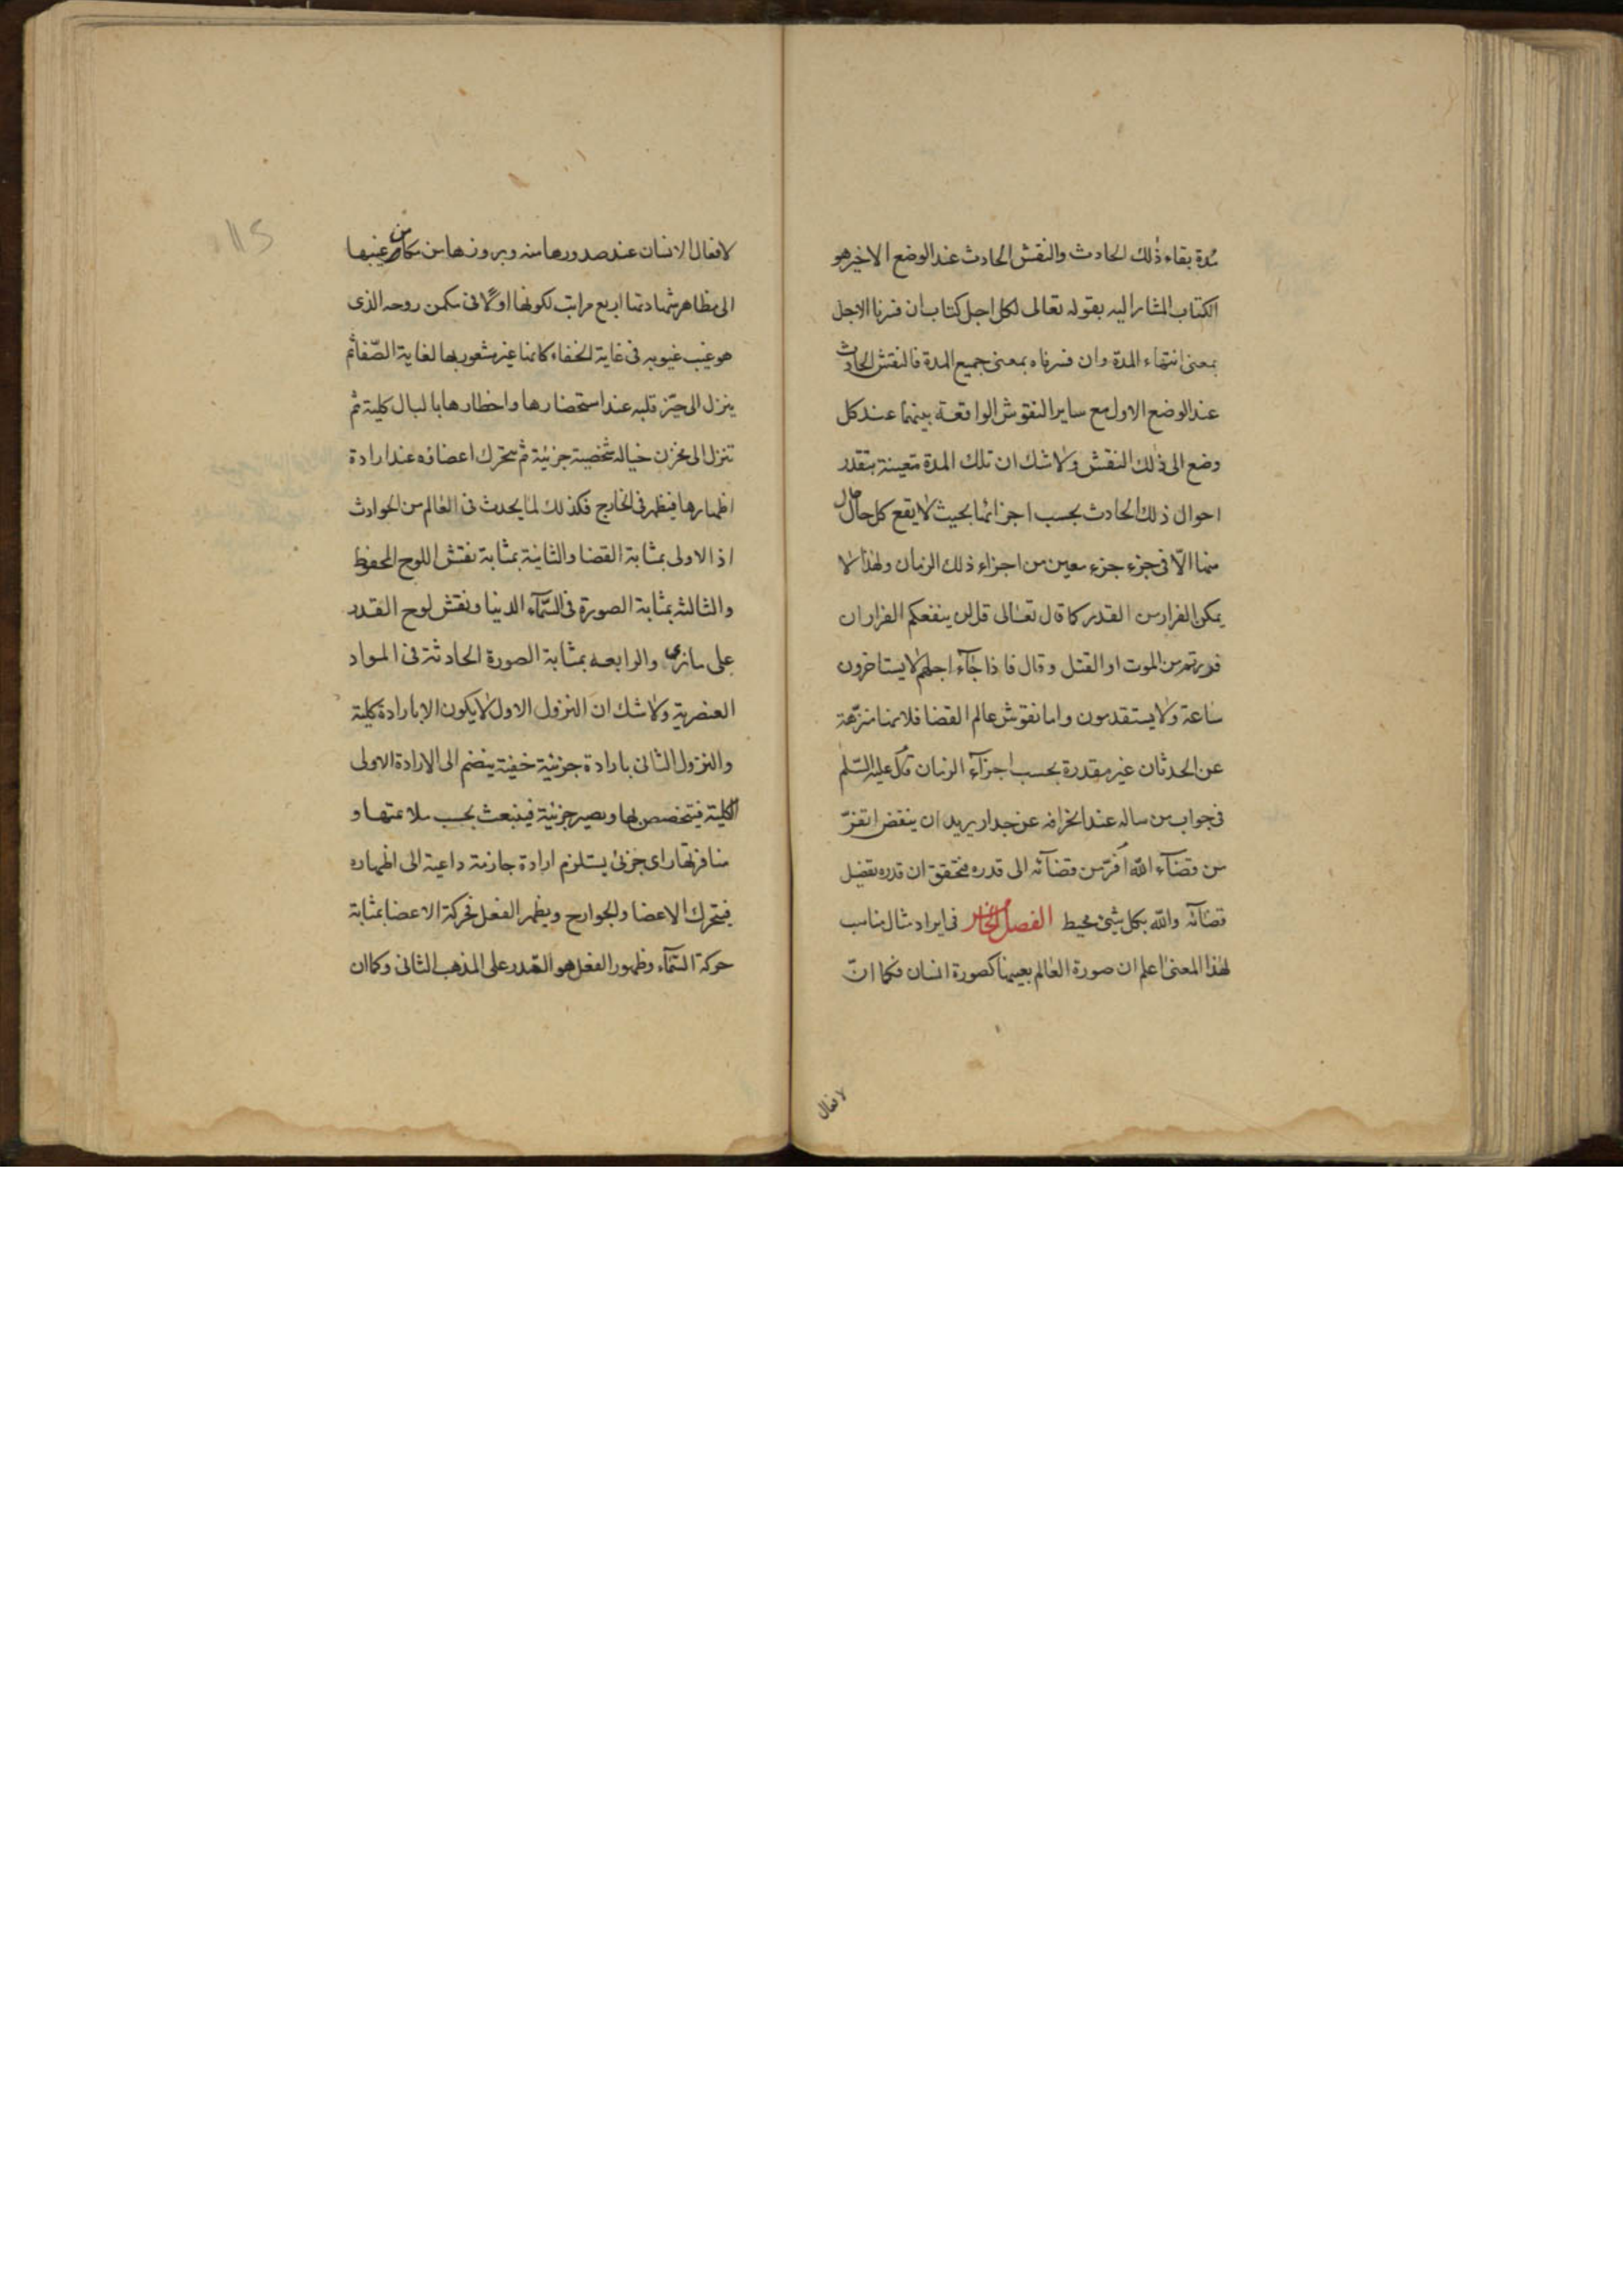 مدة بقاء ذلك الحادث والنقش الحادث عند الوضع الاخير هو
الكتاب المشار اليه بقوله تعالى لكل اجل كتاب ان فسرنا الاجل
بمعنى انتهاء المدة وان فسرناه بمعنى جميع المدة فالنقش الحادث
عند الوضع الاول مع ساير النقوش الواقعة بينهما عند كل
وضع الى ذلك النقش ولا شك ان تلك المدة متعينة بتقدر
احوال ذلك الحادث بحسب اجزائها بحيث لا يقع كل حال
منها الّا فى جزء جزء معين من اجزاء ذلك الزمان ولهذا لا
يمكن الفرار من القدر كما قال تعالى قل لن ينفعكم الفرار ان
فررتم من الموت او القتل وقال فاذا جآء اجلهم لا يستاخرون
ساعة ولا يستقدمون واما نقوش عالم القضا فلانها منزهة
عن الحدثان غير مقدرة بحسب اجزآء الزمان قال عليه السّلم
فى جواب من ساله عند انحرافه عن جدار يريد ان ينقض اتفرّ
من قضآء الله افرّ من قضآئه الى قدره فتحقق ان قدره تفضيل
قضآئه والله بكل شئ محيط الفصل الخامس فى ايراد مثال مناسب
لهذا المعنى اعلم ان صورة العالم بعينها كصورة انسان فكما انّ
لافعال
لافعال الانسان عند صدورها منه وبروزها من مكامن غيبها
الى مظاهر شهادتها اربع مراتب لكونها اوّلا فى مكمن روحه الذى
هو غيب غيوبه فى غاية الخفاء كانها غير مشعور بها لغاية الصّفا ثم
ينزل الى حيّز قلبه عند استحضارها واخطارها بالبال كلية ثم
تنزل الى مخزن خياله شخصية جزئية ثم يتحرك اعضاؤه عند ارادة
اظهارها فيظهر فى الخارج فكذلك لما يحدث فى العالم من الحوادث
اذ الاولى بمثابة القضا والثانية بمثابة نقش اللوح المحفوظ
والثالثه بمثابة الصورة فى السّمآء الدنيا ونقش لوح القدر
على ما نرى والرابعه بمثابة الصورة الحادثة فى المواد
العنصرية ولا شك ان النزول الاول لا يكون الا بارادة كلية
والنزول الثانى بارادة جزئية خفية ينضم الى الارادة الاولى
الكلية فيتخصص بها ويصير جزئية فينبعث بحسب ملائمتها و
منافرتها راى جزئى يستلزم ارادة جازمة داعية الى اظهاره
فيتحرك الاعضا والجوارح ويظهر الفعل فحركة الاعضا بمثابة
حركة السّمآء وظهور الفعل هو القدر على المذهب الثانى وكما ان